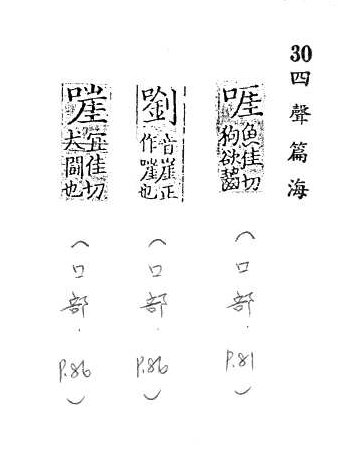 30 四聲篇海
啀 魚佳切
狗欲齧
（口部. P.81）
嚠 音崖正
作嘊也
（口部. P.86）
嘊 宜佳切
犬鬪也
（口部. P.86）